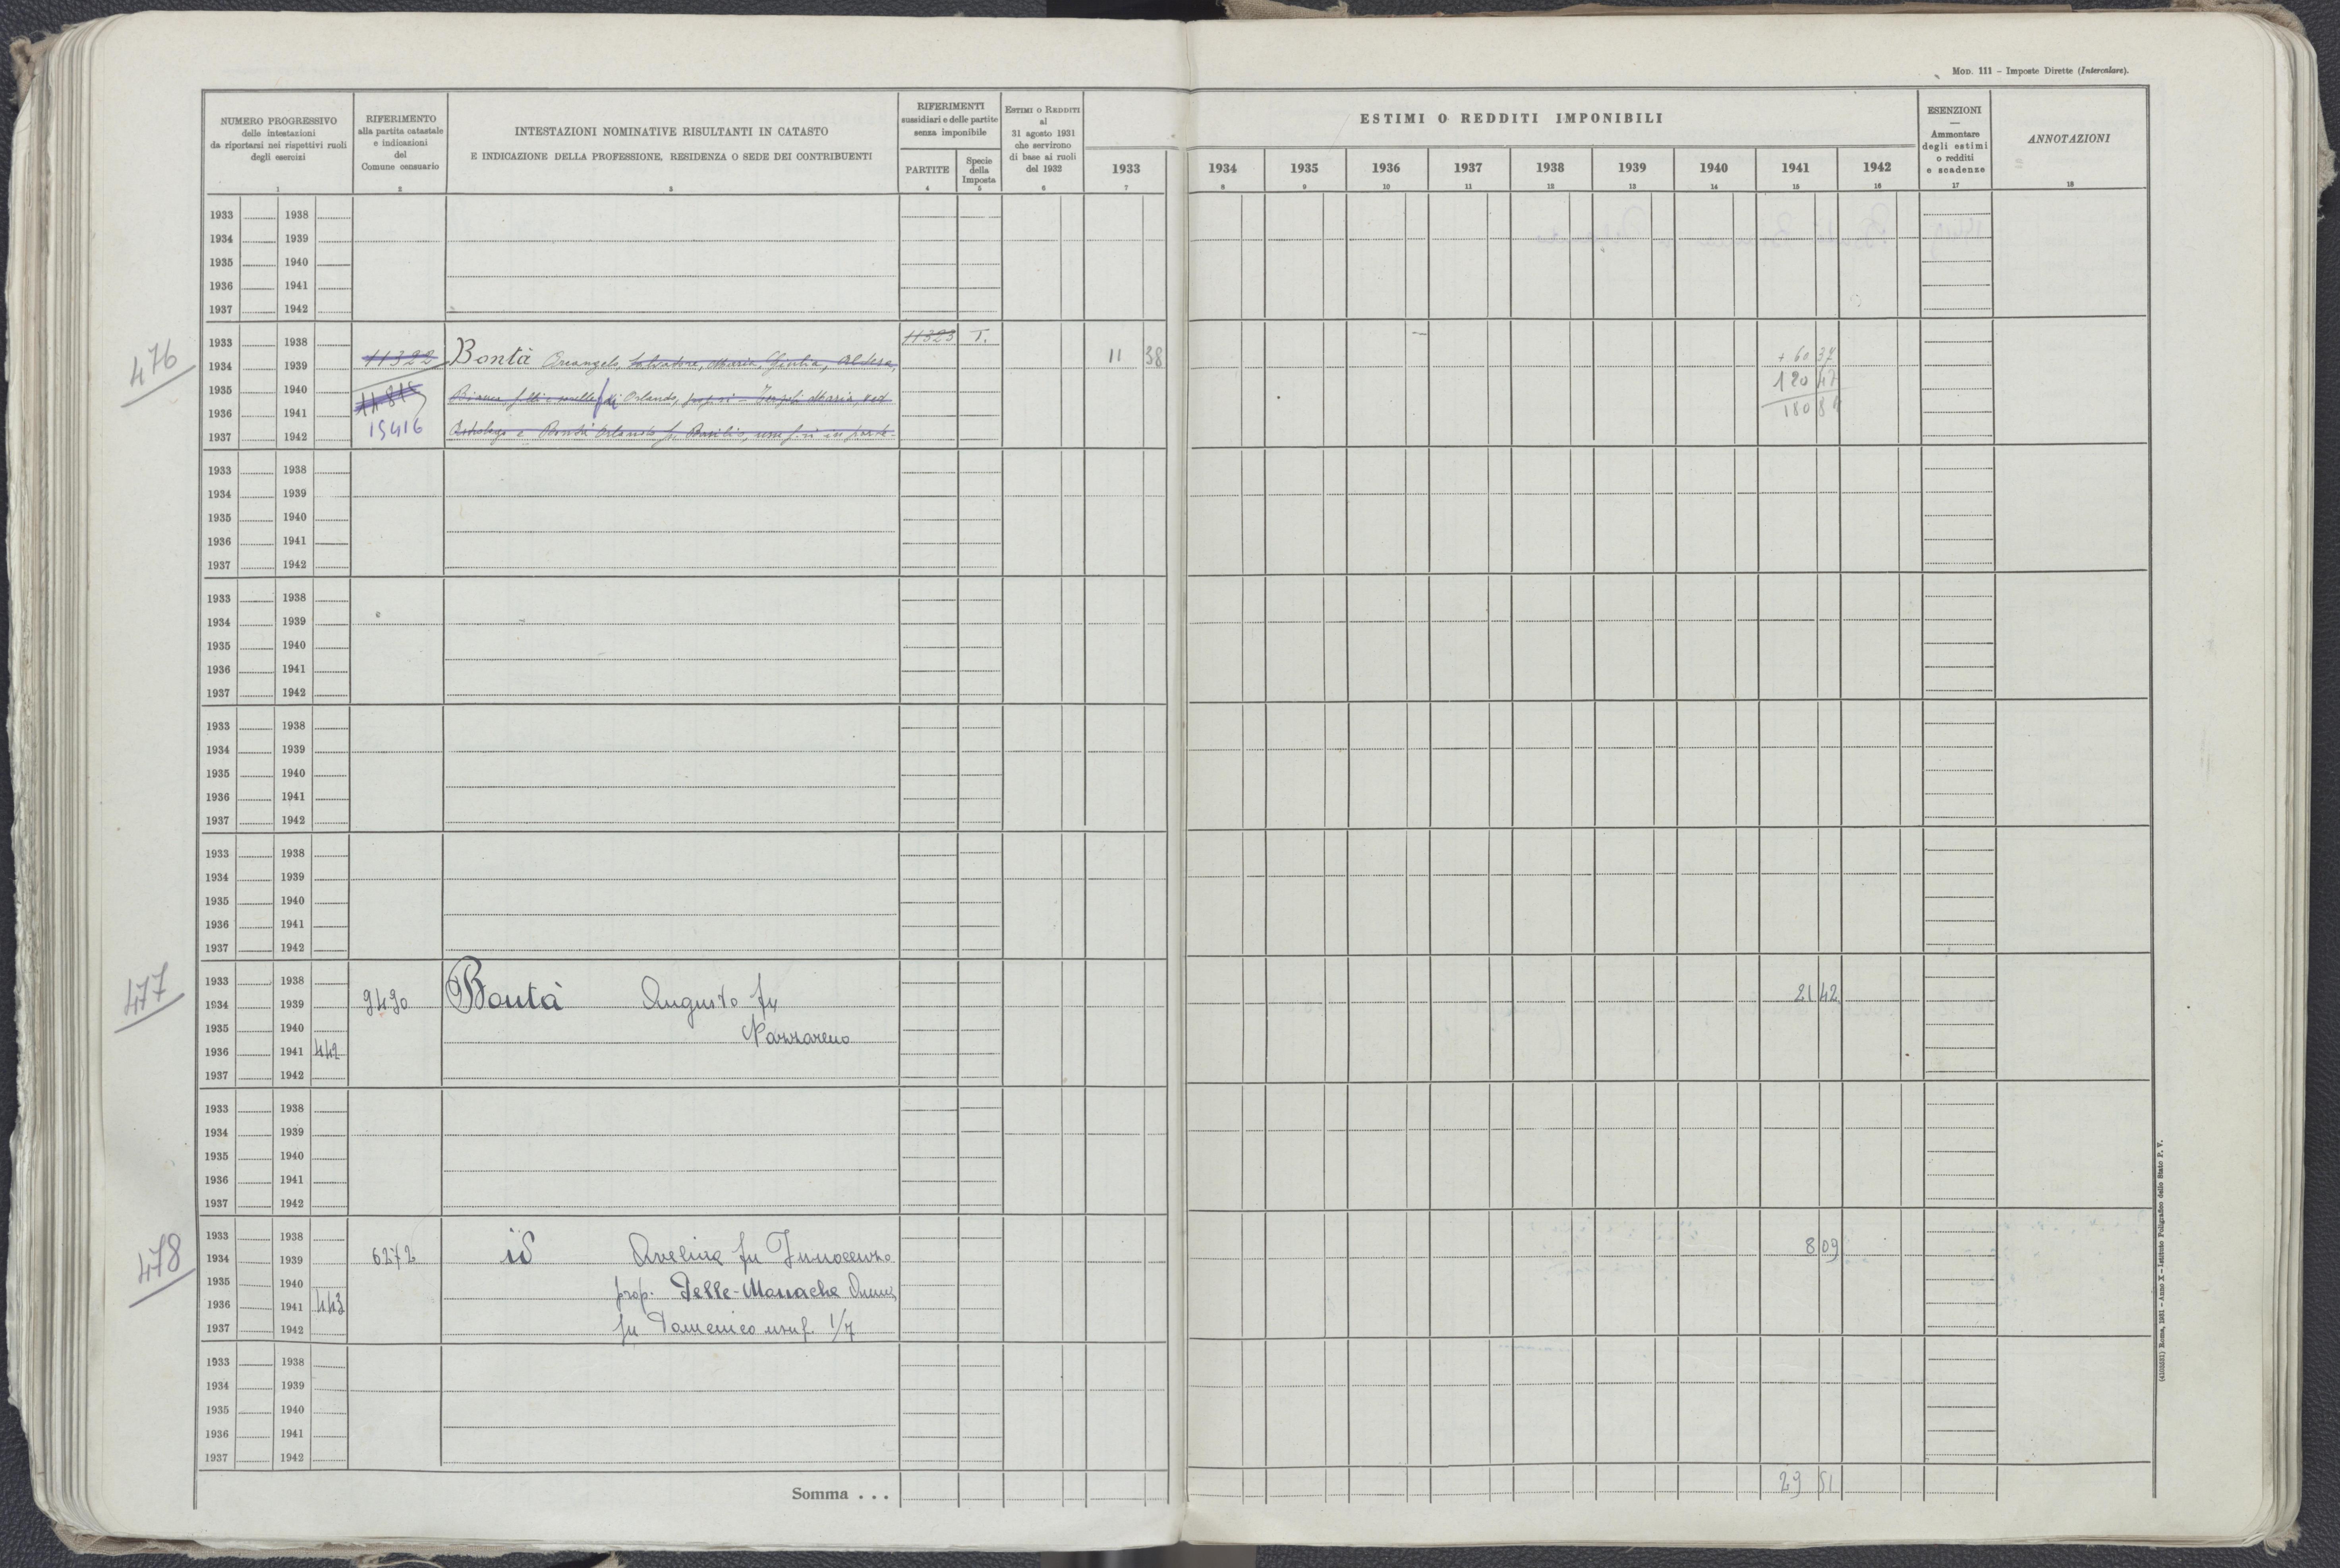 MOD. 111 – Imposte Dirette (Intercalare).
NUMERO PROGRESSIVO
delle intestazioni
da riportarsi nei rispettivi ruoli
degli esercizi
1
RIFERIMENTO
alla partita catastale
e indicazioni
del
Comune censuario
2
INTESTAZIONI NOMINATIVE RISULTANTI IN CATASTO
E INDICAZIONE DELLA PROFESSIONE, RESIDENZA O SEDE DEI CONTRIBUENTI
3
RIFERIMENTI
sussidiari e delle partite
senza imponibile
PARTITE
4
Specie
della
Imposta
5
ESTIMI O REDDITI
al
31 agosto 1931
che servirono
di base ai ruoli
del 1932
6
ESTIMI O REDDITI IMPONIBILI
1933 1934 1935 1936 1937 1938 1939 1940 1941 1942
7 8 9 10 11 12 13 14 15 16
ESENZIONI
—
Ammontare
degli estimi
o redditi
e scadenze
17
ANNOTAZIONI
18
1933 1938
1934 1939
1935 1940
1936 1941
1937 1942
476
1933 1938 11323 T.
1934 1939 11322 Bontà Arcangelo, Salvatore, Maria, Giulia, 11 38 + 60 37
1935 1940 Bianca, f.lli e sorelle di Orlando, Maria, 120 47
1936 1941 180 84
1937 1942 15416 e Bontà Orlando fu Basilio, in parte
1933 1938
1934 1939
1935 1940
1936 1941
1937 1942
1933 1938
1934 1939
1935 1940
1936 1941
1937 1942
1933 1938
1934 1939
1935 1940
1936 1941
1937 1942
1933 1938
1934 1939
1935 1940
1936 1941
1937 1942
477
1933 1938
1934 1939 9490 Bontà Augusto fu 21 42
1935 1940 Nazzareno
1936 1941 442
1937 1942
1933 1938
1934 1939
1935 1940
1936 1941
1937 1942
478
1933 1938
1934 1939 6272 id Avelina fu Innocenzo 8 09
1935 1940 prop. Delle-Monache
1936 1941 443
1937 1942 fu Domenico usuf. 1/7
1933 1938
1934 1939
1935 1940
1936 1941
1937 1942
Somma . . . 29 51
(4105531) Roma, 1931 – Anno X – Istituto Poligrafico dello Stato P. V.